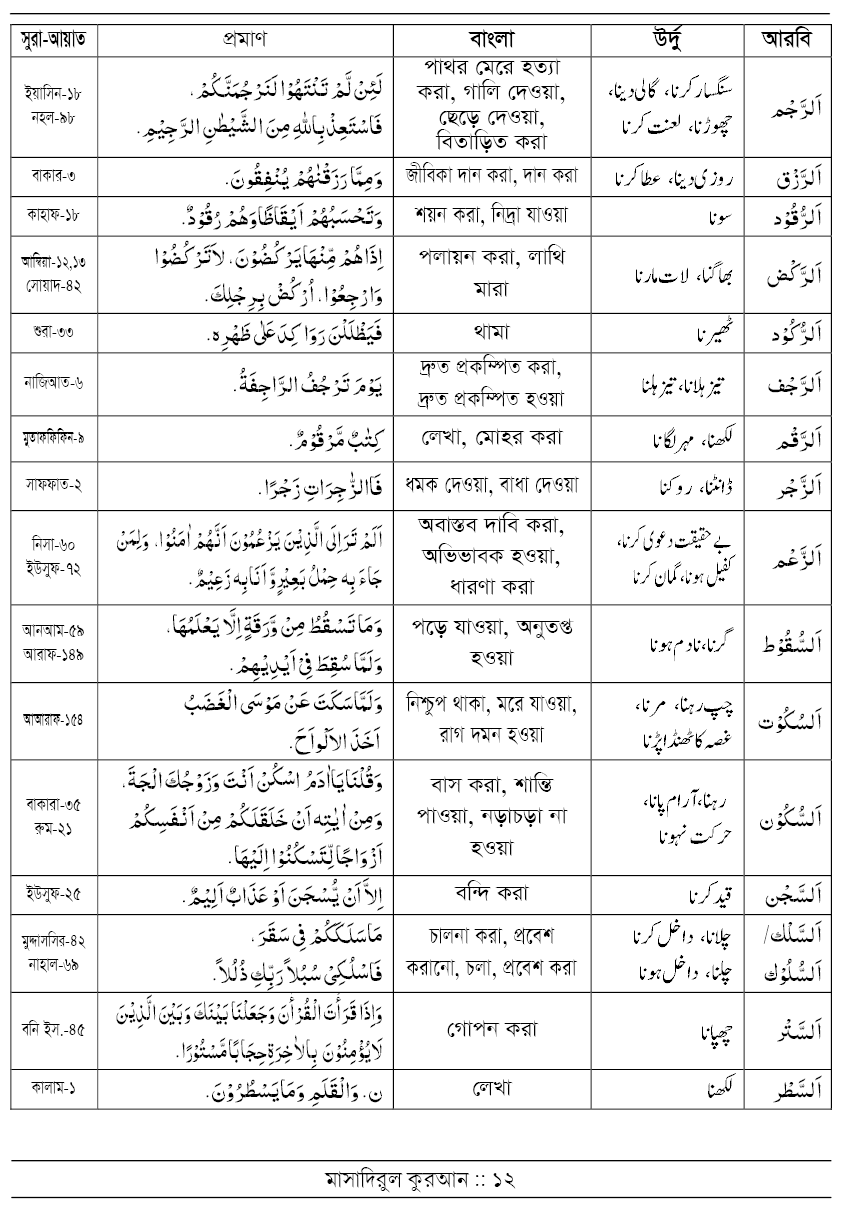 সুরা-আয়াত প্রমাণ বাংলা উর্দু আরবি
ইয়াসিন-১৮
নহল-৯৮
لَئِنْ لَّمْ تَنْتَهُوْا لَنَرْجُمَنَّكُمْ.
فَاسْتَعِذْ بِاللهِ مِنَ الشَّيْطٰنِ الرَّجِيْمِ.
পাথর মেরে হত্যা
করা, গালি দেওয়া,
ছেড়ে দেওয়া,
বিতাড়িত করা
سنگسار کرنا، گالی دینا،
چھوڑنا، لعنت کرنا
اَلرَّجْم
বাকার-৩
وَمِمَّا رَزَقْنٰهُمْ يُنْفِقُوْنَ.
জীবিকা দান করা, দান করা
روزی دینا، عطا کرنا
اَلرَّزْق
কাহাফ-১৮
وَتَحْسَبُهُمْ اَيْقَاظًا وَهُمْ رُقُوْدٌ.
শয়ন করা, নিদ্রা যাওয়া
سونا
اَلرُّقُوْد
আম্বিয়া-১২,১৩
সোয়াদ-৪২
اِذَاهُمْ مِّنْهَا يَرْكُضُوْنَ، لَاتَرْكُضُوْا
وَارْجِعُوْا. اُرْكُضْ بِرِجْلِكَ.
পলায়ন করা, লাথি
মারা
بھاگنا، لات مارنا
اَلرَّكْض
শুরা-৩৩
فَيَظْلَلْنَ رَوَاكِدَ عَلٰى ظَهْرِهٖ.
থামা
ٹھیرنا
اَلرُّكُوْد
নাজিআত-৬
يَوْمَ تَرْجُفُ الرَّاجِفَةُ.
দ্রুত প্রকম্পিত করা,
দ্রুত প্রকম্পিত হওয়া
تیز ہلانا، تیز ہلنا
اَلرَّجْف
মুতাফফিফিন-৯
كِتٰبٌ مَّرْقُوْمٌ.
লেখা, মোহর করা
لکھنا، مہر لگانا
اَلرَّقْم
সাফফাত-২
فَاالزّٰجِرَاتِ زَجْرًا.
ধমক দেওয়া, বাধা দেওয়া
ڈانٹنا، روکنا
اَلزَّجْر
নিসা-৬০
ইউসুফ-৭২
اَلَمْ تَرَ اِلَى الَّذِيْنَ يَزْعُمُوْنَ اَنَّهُمْ اٰمَنُوْا. وَلِمَنْ
جَاءَ بِهٖ حِمْلُ بَعِيْرٍ وَّاَنَا بِهٖ زَعِيْمٌ.
অবাস্তব দাবি করা,
অভিভাবক হওয়া,
ধারণা করা
بے حقیقت دعوی کرنا،
کفیل ہونا، گمان کرنا
اَلزَّعْم
আনআম-৫৯
আরাফ-১৪৯
وَمَا تَسْقُطُ مِنْ وَّرَقَةٍ اِلَّا يَعْلَمُهَا.
وَلَمَّا سُقِطَ فِيْ اَيْدِيْهِمْ.
পড়ে যাওয়া, অনুতপ্ত
হওয়া
گرنا، نادم ہونا
اَلسُّقُوْط
আআরাফ-১৫৪
وَلَمَّا سَكَتَ عَنْ مَوْسَى الْغَضَبُ
اَخَذَ الْاَلْوَاحَ.
নিশ্চুপ থাকা, মরে যাওয়া,
রাগ দমন হওয়া
چپ رہنا، مرنا،
غصہ کا ٹھنڈا پڑنا
اَلسُّكُوْت
বাকারা-৩৫
রুম-২১
وَقُلْنَا يَااٰدَمُ اسْكُنْ اَنْتَ وَزَوْجُكَ الْجَةَ،
وَمِنْ اٰيٰتِهٖ اَنْ خَلَقَلَكُمْ مِنْ اَنْفَسِكُمْ
اَزْوَاجًا لِّتَسْكُنُوْا اِلَيْهَا.
বাস করা, শান্তি
পাওয়া, নড়াচড়া না
হওয়া
رہنا، آرام پانا،
حرکت نہونا
اَلسُّكُوْن
ইউসুফ-২৫
اِلاَّ اَنْ يُّسْجَنَ اَوْ عَذَابٌ اَلِيْمٌ.
বন্দি করা
قید کرنا
اَلسَّجْن
মুদ্দাসসির-৪২
নাহাল-৬৯
مَاسَلَكَكُمْ فِى سَقَرَ.
فَاسْلُكِىْ سُبُلاً رَبِّكِ ذُلُلاً.
চালনা করা, প্রবেশ
করানো, চলা, প্রবেশ করা
چلانا، داخل کرنا
چلنا، داخل ہونا
اَلسَّلْك/
اَلسُّلُوْك
বনি ইস.-৪৫
وَاِذَا قَرَأْتَ الْقُرْأٰنَ وَجَعَلْنَا بَيْنَكَ وَبَيْنَ الَّذِيْنَ
لَايُؤْمِنُوْنَ بِالْاٰخِرَةِ حِجَابًا مَّسْتُوْرًا.
গোপন করা
چھپانا
اَلسَّتْر
কালাম-১
ن. وَالْقَلَمِ وَمَا يَسْطُرُوْنَ.
লেখা
لکھنا
اَلسَّطْر
মাসাদিরুল কুরআন :: ১২